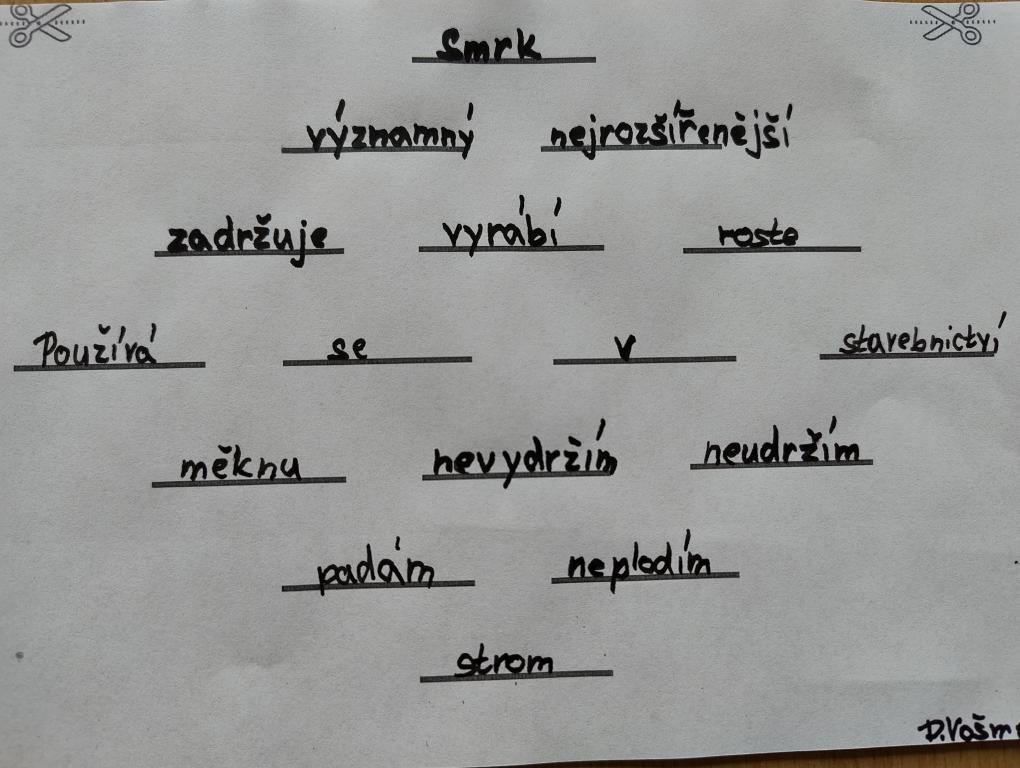 Smrk
významný nejrozšířenější
zadržuje vyrábí roste
Používá se v stavebnictví
měknu nevydržím neudržím
padám neplodím
strom